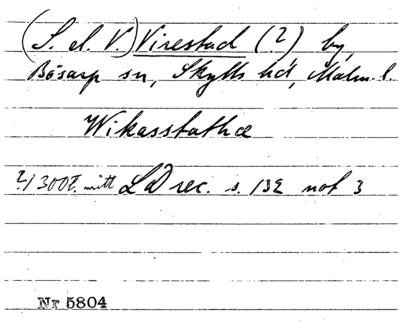 (S. el. V.) Virestad (?) by,
Bösarp sn, Skytts hd, Malm. l.
Wikasstathæ
2/ 300t. mitt LD rec. s. 132 not 3
Nr 5804